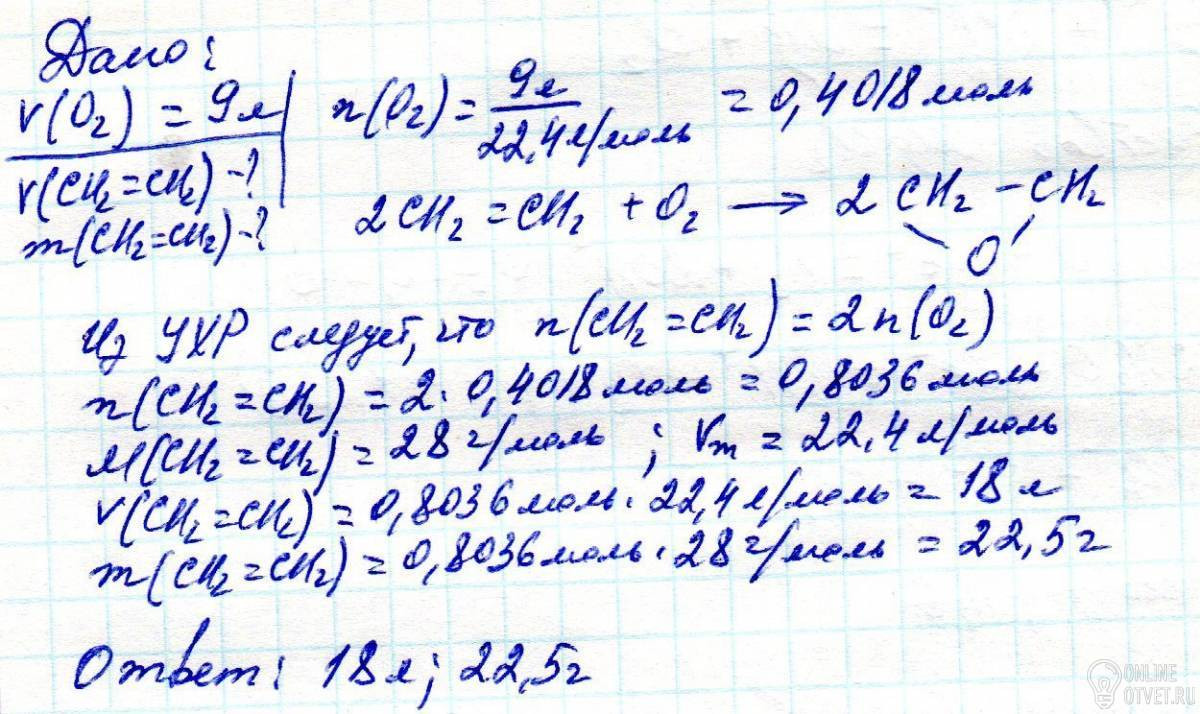 Дано:
V(O₂) = 9л
V(CH₂=CH₂) -?
m(CH₂=CH₂) -?
n(O₂) = 9л / 22,4 л/моль = 0,4018 моль
2CH₂=CH₂ + O₂ → 2CH₂ – CH₂
O
Из УХР следует, что n(CH₂=CH₂) = 2n(O₂)
n(CH₂=CH₂) = 2 · 0,4018 моль = 0,8036 моль
M(CH₂=CH₂) = 28 г/моль ; Vm = 22,4 л/моль
V(CH₂=CH₂) = 0,8036 моль · 22,4 л/моль = 18 л
m(CH₂=CH₂) = 0,8036 моль · 28 г/моль = 22,5 г
Ответ: 18 л; 22,5 г
ONLINE
OTVET.RU